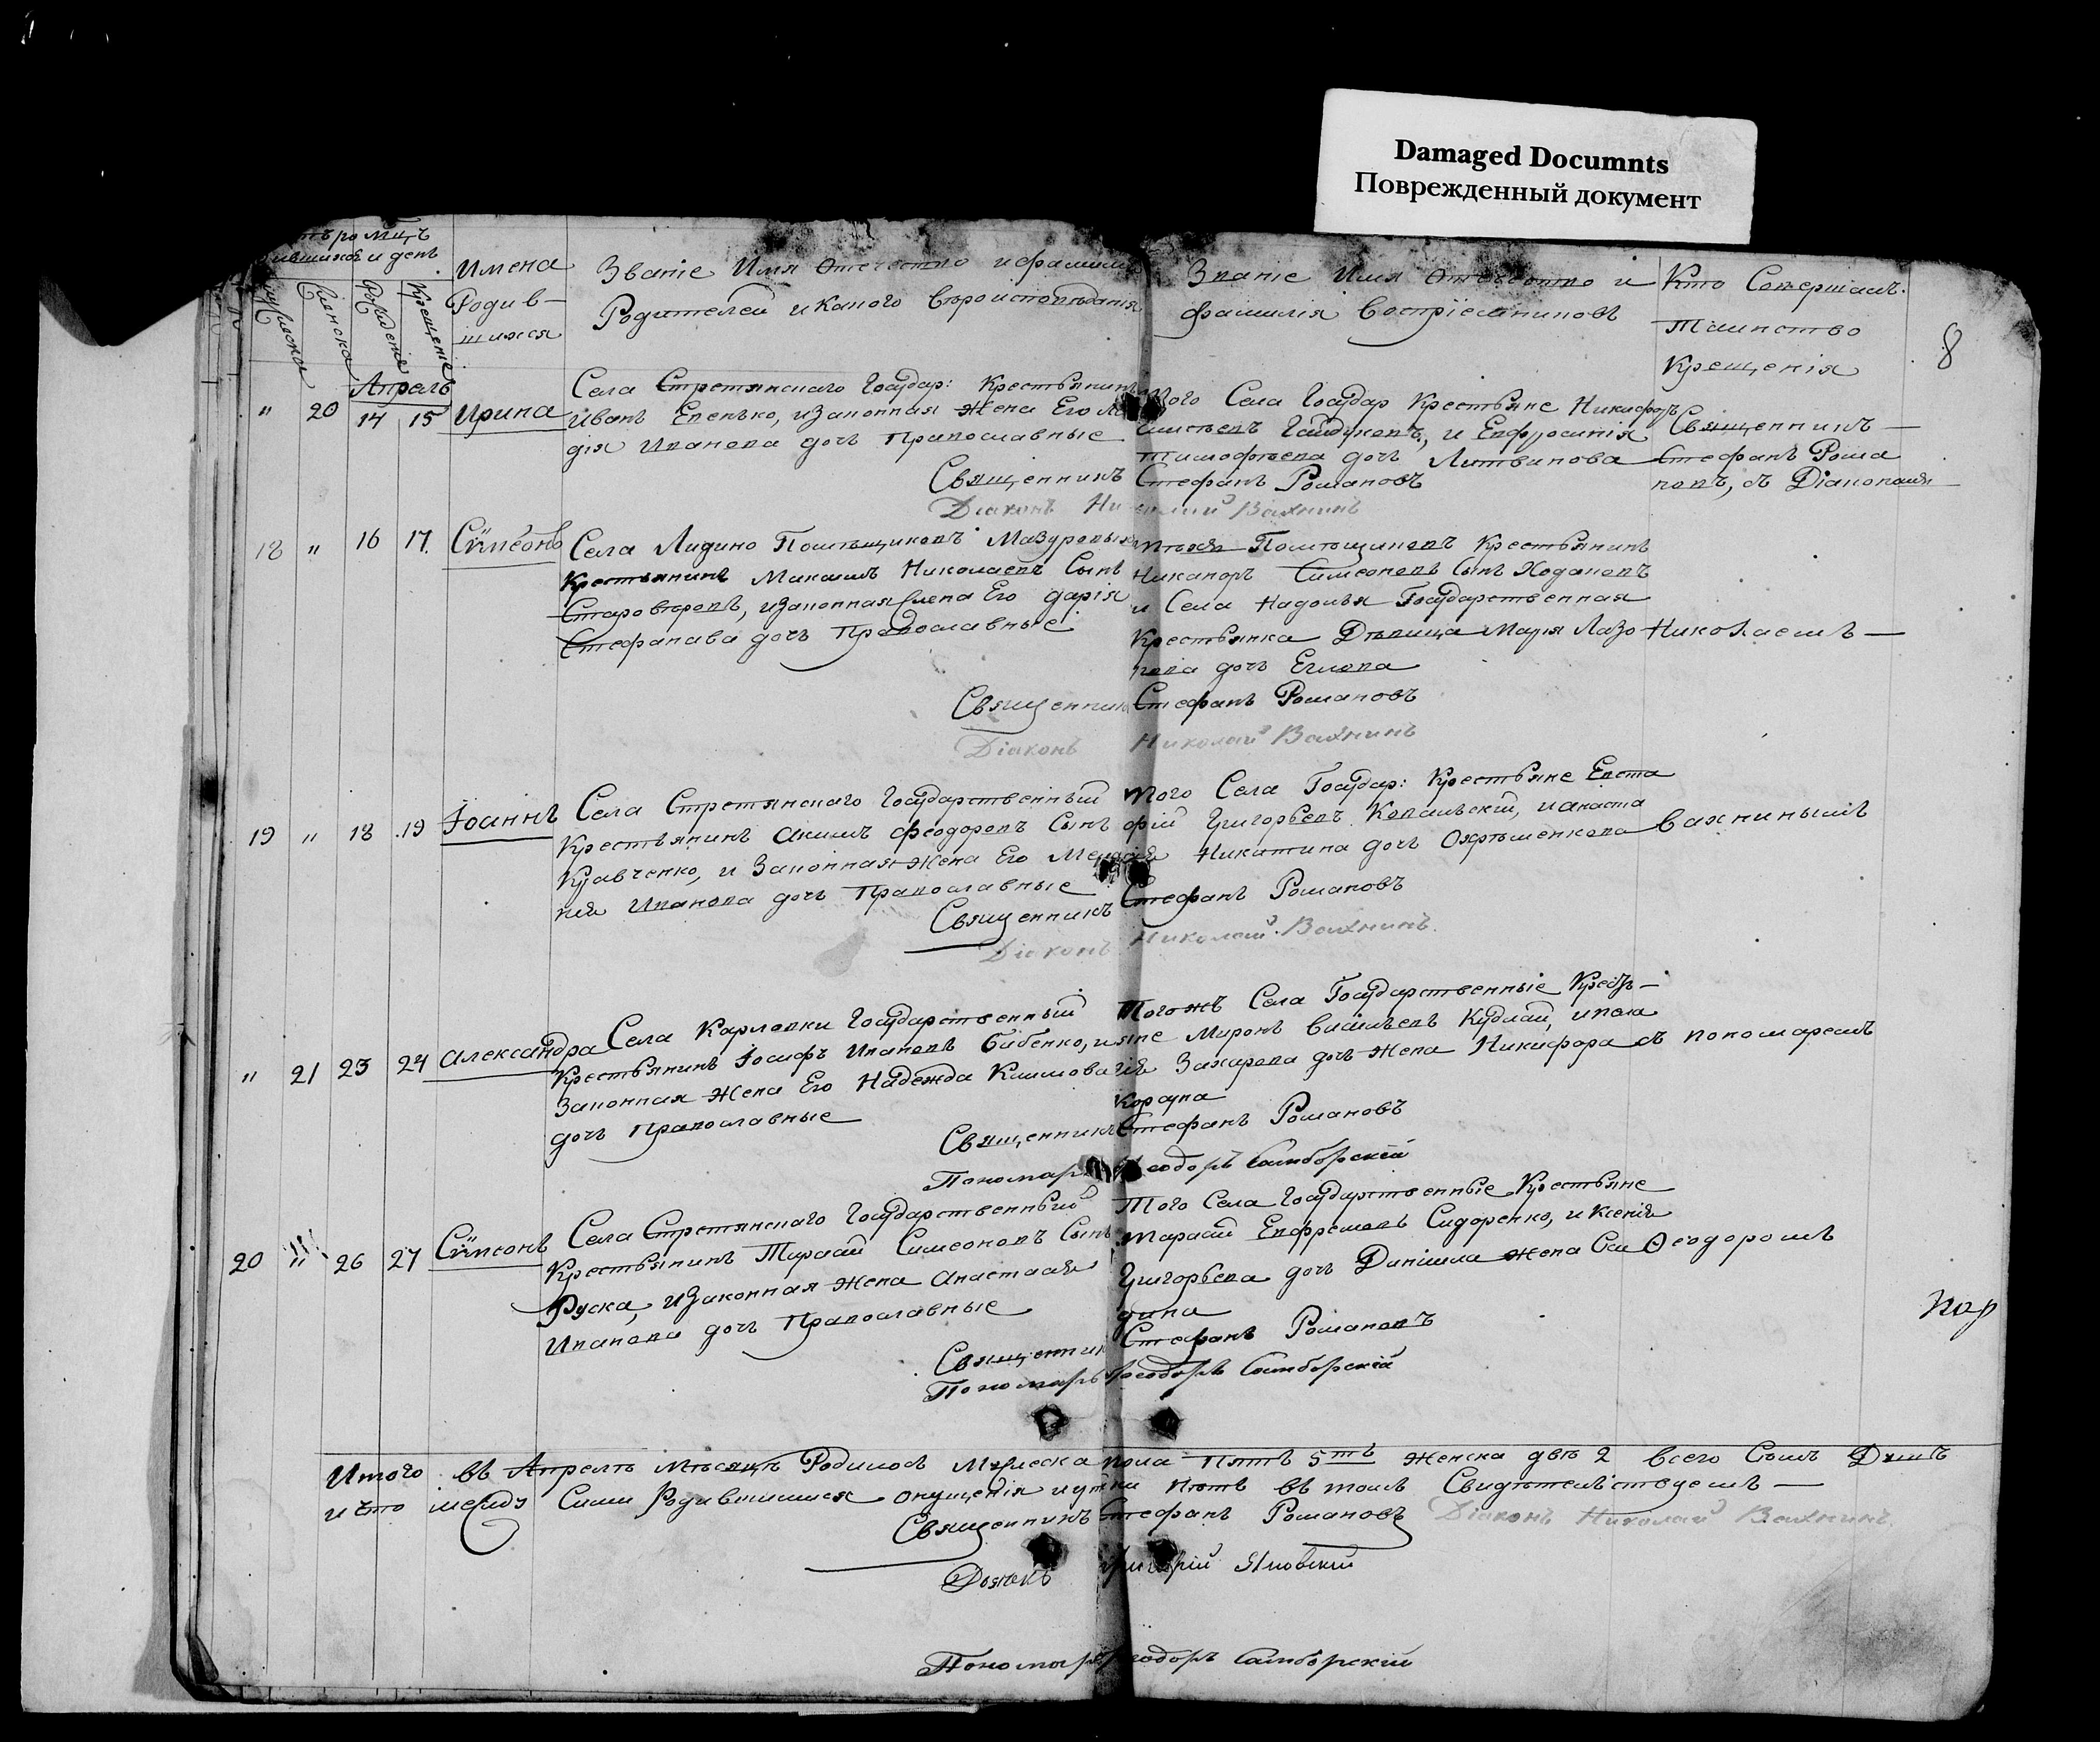 Damaged Documnts
Поврежденный документ
8
Имена
Родив-
шихся
Званіе Имя Отечество и фамилія
Родителей и какого вѣроисповѣданія
Званіе Имя Отечество и
фамилія Воспріемниковъ
Кто Совершалъ
таинство
Крещенія
Женска
Рожденія
Крещенія
Апрель
" 20 14 15 Ирина
Села Стретянскаго Государ: Крестьянинъ
Иванъ, и законная Жена Его
дія Иванова дочь Православные
того Села Государ Крестьяне Никифоръ
Гайдуковъ, и Евфросинія
Тимофѣева дочь Литвинова
Священникъ
Стефанъ Рома
новъ, съ Діакономъ
Священникъ Стефанъ Романовъ
Діаконъ Николай Вахнинъ
18 " 16 17 Сѵмеонъ
Села Лидино Помѣщиковъ Мазуровыхъ
Крестьянинъ Михаилъ Николаевъ Сынъ
Староверовъ, и законная Жена Его Дарія
Стефанава дочь Православные
Помѣщиковъ Крестьянинъ
Никаноръ Симеоновъ Сынъ Ходановъ
и Села Надолья Государственная
Крестьянка Дѣвица Марія Лазо
рева дочь
Николаемъ —
Священникъ Стефанъ Романовъ
Діаконъ Николай Вахнинъ
19 " 18 19 Іоаннъ
Села Стретянскаго Государственный
Крестьянинъ Акимъ Феодоровъ Сынъ
Кравченко, и Законная Жена Его Мелан
нія Иванова дочь Православные
того Села Государ: Крестьяне Евста
фій Григорьевъ, и Анаста
сія Никитина дочь
Вахнинымъ
Священникъ Стефанъ Романовъ
Діаконъ Николай Вахнинъ.
" 21 23 24 Александра
Села Карловки Государственный
Крестьянинъ Іосифъ Ивановъ Бибенко, и
Законная Жена Его Надежда Климова
дочь Православные
Тогожъ Села Государственніе Кресть-
яне Миронъ Васильевъ Кудлай, и Пела
гія Захарова дочь Жена Никифора
Коруна
съ пономаремъ
Священникъ Стефанъ Романовъ
Пономарь Феодоръ Самборскій
20 " 26 27 Сѵмеонъ
Села Стретянскаго Государственный
Крестьянинъ Тарасій Симеоновъ Сынъ
Руска, и Законная Жена Анастасія
Иванова дочь Православные
Того Села Государственные Крестьяне
Тарасій Евфремовъ Сидоренко, и Ксенія
Григорьева дочь Даніила Жена Сам
дина
Ѳеодоромъ
Священникъ Стефанъ Романовъ
Пономарь Феодоръ Самборскій
Итого въ Апрелѣ Мѣсяцѣ Родилось Мужеска пола Пять 5ть Женска двѣ 2 Всего Семь Душъ
и что между Сими Родившимися опущенія и утайки Нѣтъ въ томъ Свидѣтельствуемъ —
Священникъ Стефанъ Романовъ Діаконъ Николай Вахнинъ.
Дьячекъ Григорій Яновскій
Пономарь Феодоръ Самборскій